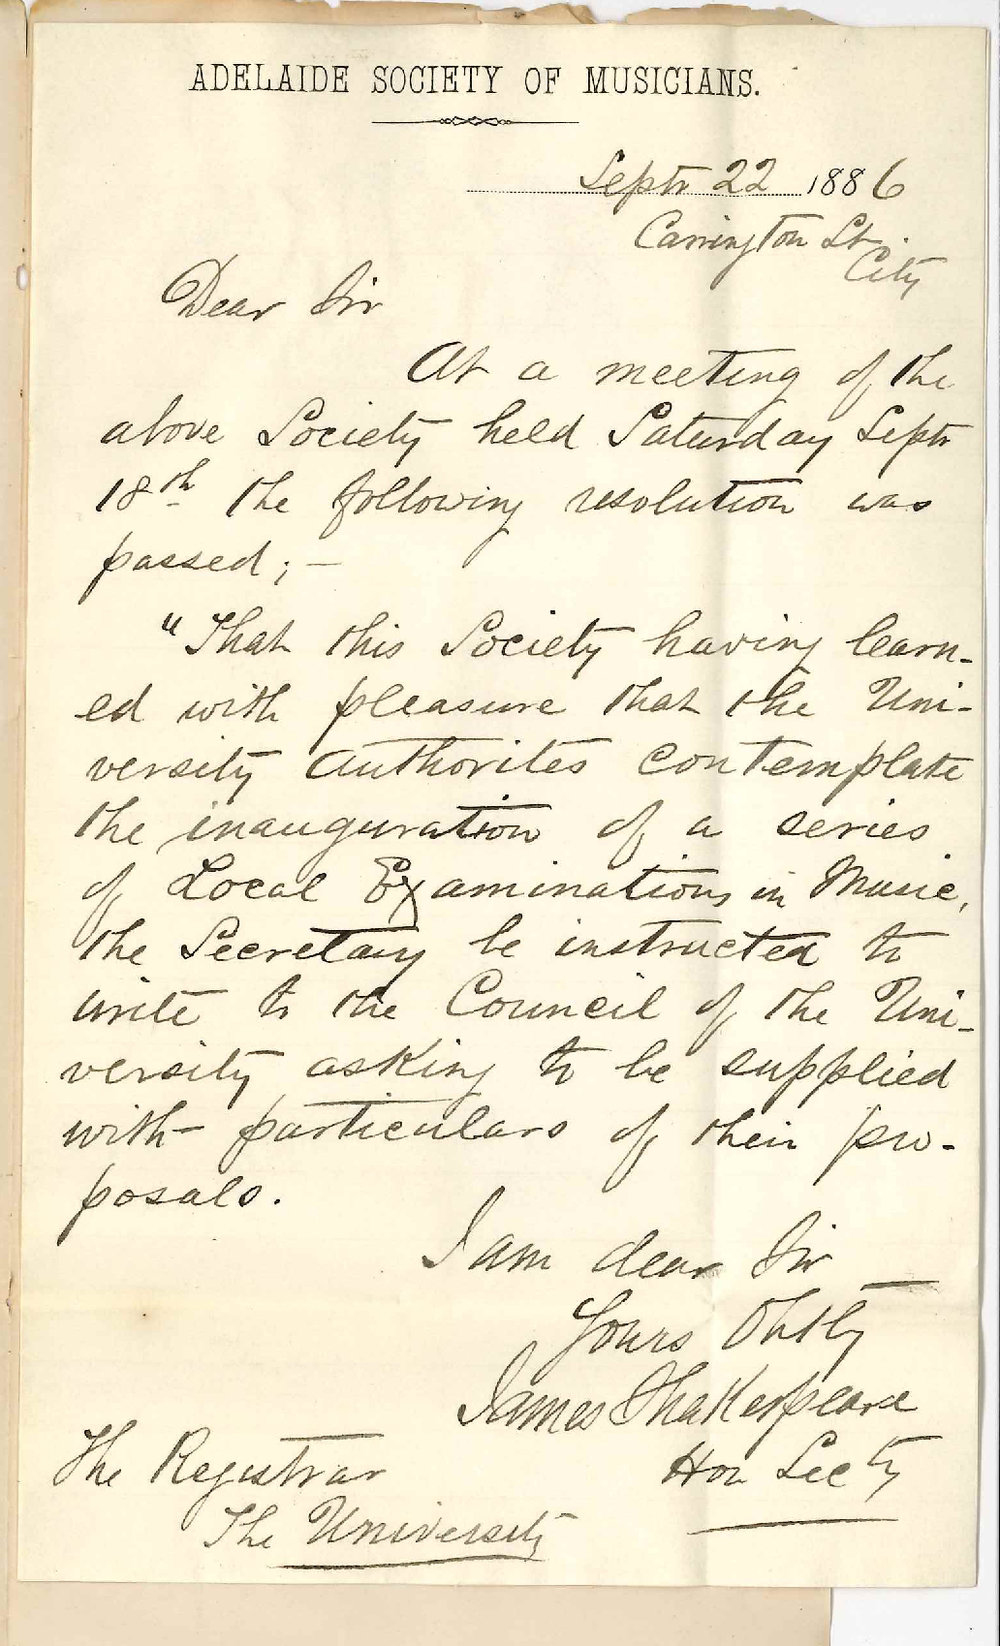 ADELAIDE SOCIETY OF MUSICIANS.
Septr 22 1886
Carrington St.
City
Dear Sir
At a meeting of the
above Society held Saturday Septr
18th the following resolution was
passed; –
"That this Society having learn-
ed with pleasure that the Uni-
versity authorites contemplate
the inauguration of a series
of Local Examinations in Music,
the Secretary be instructed to
write to the Council of the Uni-
versity asking to be supplied
with particulars of their pro-
posals.
I am dear Sir
Yours Obtly
James Shakespeare
Hon Secty
The Registrar
The University